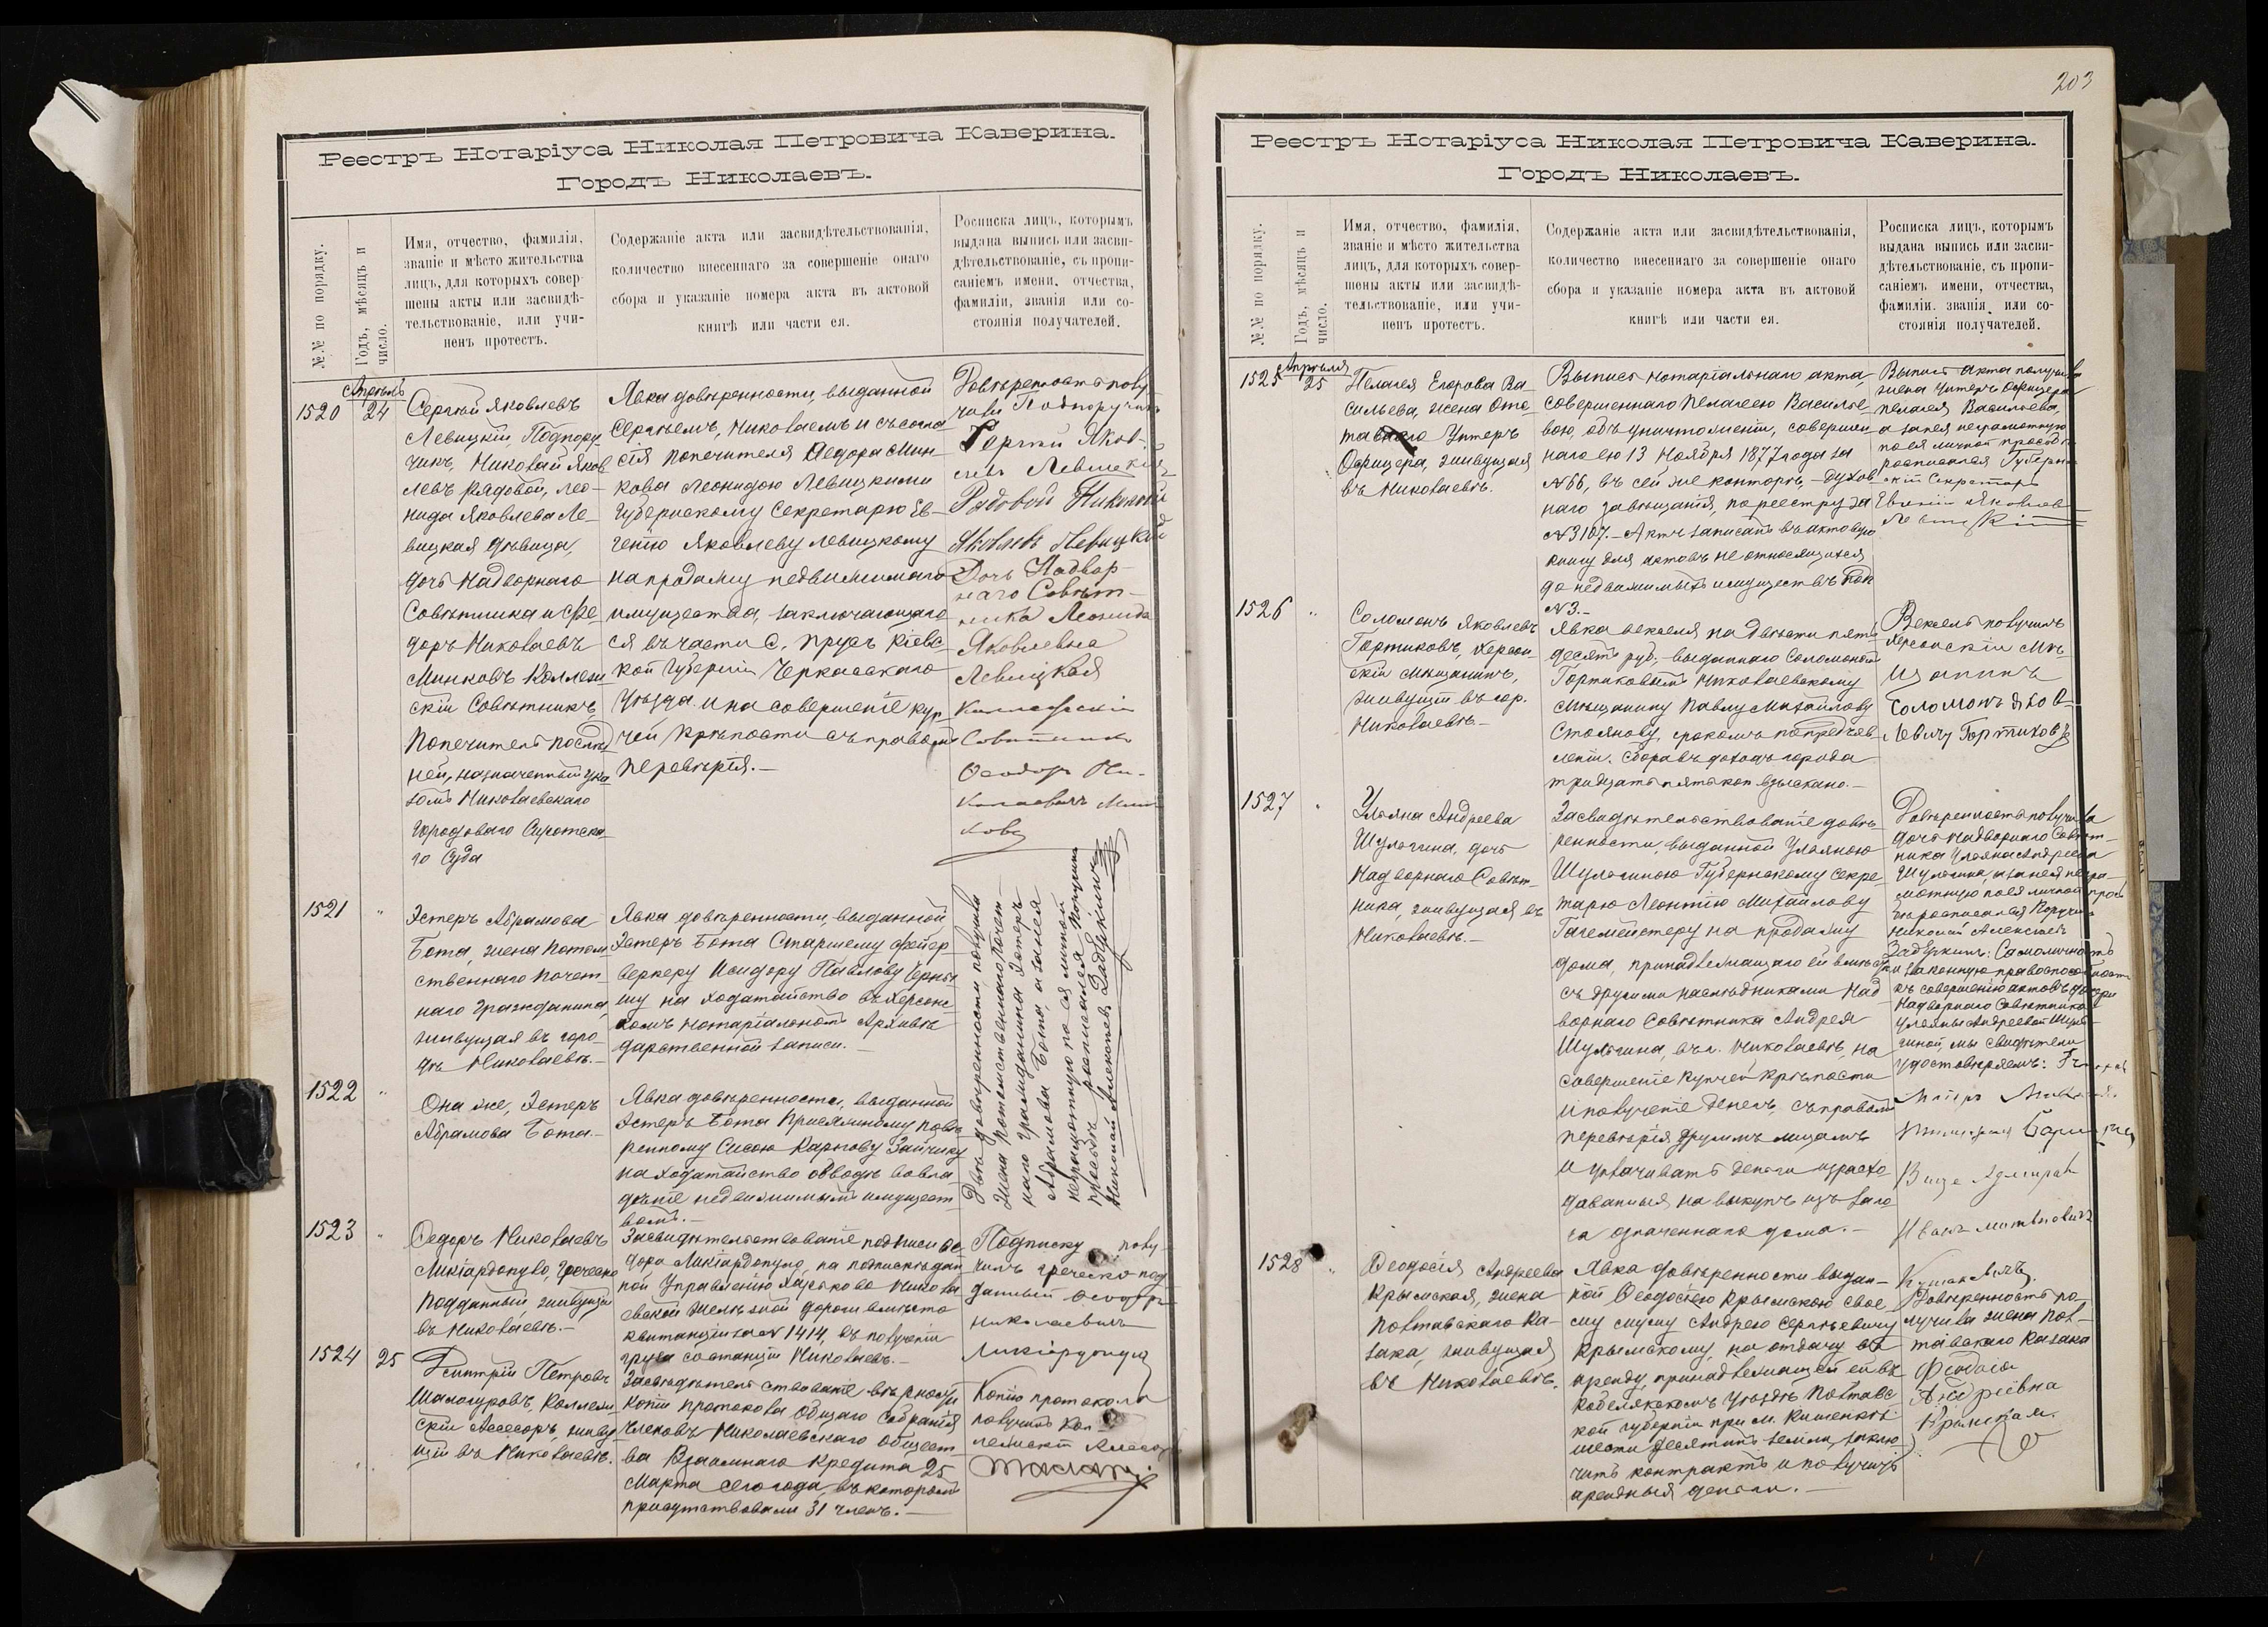 Реестръ Нотаріуса Николая Петровича Каверина.
Городъ Николаевъ.
№.№ по порядку.
Годъ, мѣсяцъ и
число.
Имя, отчество, фамилія,
званіе и мѣсто жительства
лицъ, для которыхъ совер-
шены акты или засвидѣ-
тельствованіе, или учи-
ненъ протестъ.
Содержаніе акта или засвидѣтельствованія,
количество внесеннаго за совершеніе онаго
сбора и указаніе номера акта въ актовой
книгѣ или части ея.
Росписка лицъ, которымъ
выдана выпись или засви-
дѣтельствованіе, съ пропи-
саніемъ имени, отчества,
фамиліи, званія или со-
стоянія получателей.
1520
Апрѣль
24
Сергѣй Яковлевъ
Левицкій, Подпору-
чикъ, Николай Яков
левъ Рядовой, Лео-
нида Яковлева Ле-
вицкая дѣвица,
дочь Надворнаго
Совѣтника и Ѳе-
доръ Николаевъ
Минковъ Коллеж
скій Совѣтникъ,
Попечитель послѣд
ней, назначенный ука
зомъ Николаевскаго
Городоваго Сиротска-
го Суда
Явка довѣренности, выданной
Сергѣемъ, Николаемъ и съ согла
сія попечителя Ѳедора Мин-
кова Леонидою Левицкими
Губернскому Секретарю Ев-
генію Яковлеву Левицкому
на продажу недвижимаго
имущества, заключающаго
ся въ части с. Прусъ Кіевс-
кой Губерніи Черкасскаго
Уѣзда и на совершеніе куп
чей крѣпости съ правомъ
перевѣрія.-
Довѣренность полу
чили Подпоручикъ
Сергѣй Яков-
левъ Левицкій
Рядовой Николай
Яковлевъ Левицкій
Дочь Надвор-
наго Совѣт-
ника Леонида
Яковлевна
Левицкая
Коллежскій
Совѣтникъ
Ѳеодоръ Ни-
колаевичъ Мин
ковъ
1521
"
Эстеръ Абрамова
Бота, жена Потом
ственнаго Почет-
наго Гражданина,
живущая въ горо-
дѣ Николаевѣ.-
Явка довѣренности, выданной
Эстеръ Бота Старшему фейер
веркеру Исидору Павлову Черны
шу на ходатайство въ Херсонс
комъ Нотаріальномъ Архивѣ
дарственной записи.-
1522
"
Она же, Эстеръ
Абрамова Бота.-
Явка довѣренности, выданной
Эстеръ Бота Присяжному повѣ
ренному Сысою Карпову Зайчику
на ходатайство о вводѣ во вла
дѣніе недвижимымъ имущест
вомъ.-
Двѣ довѣренности получила
жена потомственнаго Почет-
наго гражданина Эстеръ
Абрамова Бота, а за нея
неграмотную по ея личной
просьбѣ росписался Поручикъ
Николай Алексѣевъ Задеркинъ
1523
"
Ѳедоръ Николаевъ
Ликіардопуло, Греческо
подданный, живущій
въ Николаевѣ.-
Засвидѣтельствованіе подписи Ѳе-
дора Ликіардопуло, на подпискѣ дан
ной Управленію Харьково Никола
евской желѣзной дороги вмѣсто
квитанціи за № 1414, въ полученіи
груза со станціи Николаевъ.-
Подписку полу-
чилъ греческо под
данный Ѳеодоръ
Николаевичъ
Ликіардопуло
1524
25
Дмитрій Петровъ
Шамагуровъ, Коллеж
скій Ассесоръ, живу
щій въ Николаевѣ.
Засвидѣтельствованіе вѣрности
копіи протокола Общаго Собранія
Членовъ Николаевскаго Общест
ва Взаимнаго Кредита 25
Марта сего года, въ которомъ
присутствовали 31 членъ.-
Копію протокола
получилъ Кол-
лежскій Ассесоръ
203
Реестръ Нотаріуса Николая Петровича Каверина.
Городъ Николаевъ.
№.№ по порядку.
Годъ, мѣсяцъ и
число.
Имя, отчество, фамилія,
званіе и мѣсто жительства
лицъ, для которыхъ совер-
шены акты или засвидѣ-
тельствованіе, или учи-
ненъ протестъ.
Содержаніе акта или засвидѣтельствованія,
количество внесеннаго за совершеніе онаго
сбора и указаніе номера акта въ актовой
книгѣ или части ея.
Росписка лицъ, которымъ
выдана выпись или засви-
дѣтельствованіе, съ пропи-
саніемъ имени, отчества,
фамиліи, званія или со-
стоянія получателей.
1525
Апрѣля
25
Пелагея Егорова Ва
сильева, жена Отс-
тавнаго Унтеръ
Офицера, живущая
въ Николаевѣ.
Выпись нотаріальнаго акта,
совершеннаго Пелагеею Василье-
вою, объ уничтоженіи, совершен-
наго ею 13 Ноября 1877 года за
№ 66, въ сей же конторѣ, - Духов
наго завѣщанія, по реестру за
№ 3107.- Актъ записанъ въ актовую
книгу для актовъ не относящихся
до недвижимыхъ имуществъ под
№ 3.-
Выпись акта получила
жена Унтеръ Офицера
Пелагея Васильева,
а за нея неграмотную
по ея личной просьбѣ
росписался Губерн-
скій Секретарь
Евгеній Яковлев
Левицкій
1526
"
Соломонъ Яковлевъ
Гортиковъ, Херсон
скій мѣщанинъ,
живущій въ гор.
Николаевѣ.-
Явка векселя на двѣсти пять
десятъ руб, выданнаго Соломономъ
Гортиковымъ Николаевскому
мѣщанину Павлу Михайлову
Стоянову, срокомъ по предъяв-
леніи. Сбора въ доходъ города
тридцать пять коп взыскано.-
Вексель получилъ
Херсонскій Мѣ-
щанинъ
Соломонъ Яков-
левичъ Гортиковъ
1527
"
Ульяна Андреева
Шулягина, дочь
Надворнаго Совѣт-
ника, живущая въ
Николаевѣ.-
Засвидѣтельствованіе довѣ-
ренности, выданной Ульяною
Шулягиною Губернскому Секре-
тарю Леонтію Михайлову
Гагемейстеру на продажу
дома, принадлежащаго ей вмѣстѣ
съ другими наслѣдниками Над
ворнаго Совѣтника Андрея
Шулягина, въ г. Николаевѣ, на
совершеніе купчей крѣпости
и полученіе денегъ, съ правомъ
перевѣрія другимъ лицамъ
и уплачивать деньги израсхо-
дованныя на выкупъ изъ зало
га означеннаго дома.-
Довѣренность получила
дочь Надворнаго Совѣт-
ника Ульяна Андреева
Шулягина, а за нея негра-
мотную по ея личной прось
бѣ росписался Поручикъ
Николай Алексѣевъ
Задеркинъ: Самоличность
и законную правоспособность
къ совершенію актовъ дочери
Надворнаго Совѣтника
Ульяны Андреевой Шуля-
гиной, мы свидѣтели
удостовѣряемъ:
Вице Адмиралъ
Иванъ Матвѣевичъ
1528
"
Ѳеодосія Андреева
Крымская, жена
Полтавскаго Ка-
зака, живущая
въ Николаевѣ.
Явка довѣренности выдан-
ной Ѳеодосіею Крымскою свое-
му мужу Андрею Сергѣевичу
Крымскому, на отдачу въ
аренду, принадлежащей ей въ
Кобелякскомъ Уѣздѣ Полтавс
кой губерніи при м. Кишенкѣ
шести десятинъ земли, заклю-
чить контрактъ и получить
арендныя деньги.-
Довѣренность по-
лучила жена Пол-
тавскаго Казака
Феодосія
Андріевна
Крымская.